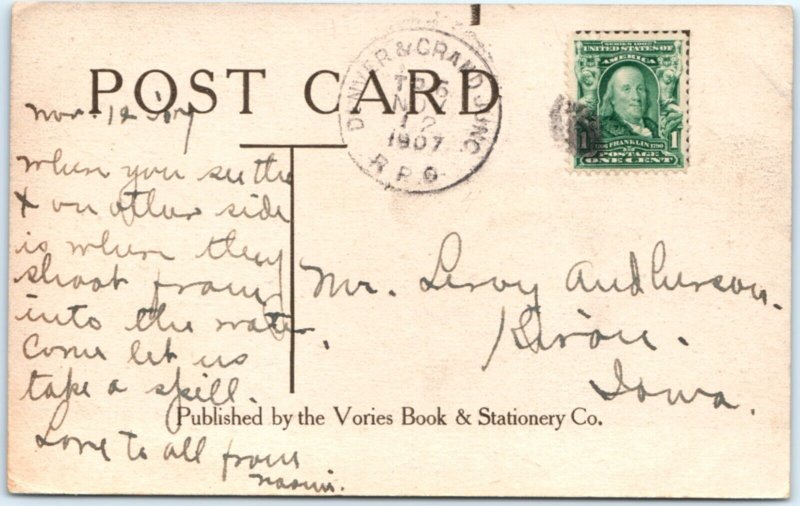 POST CARD
DENVER & GRAND JUNC.
TR 6
NOV
12
1907
R.P.O.
SERIES 1902
UNITED STATES OF
AMERICA
1 1
1706 FRANKLIN 1790
POSTAGE
ONE CENT
Nov. 12 '07
When you see the
x on other side
is where they
shoot from
into the water.
Come let us
take a spill.
Love to all from
Naomi.
Mr. Leroy Andherson.
Kiron.
Iowa.
Published by the Vories Book & Stationery Co.